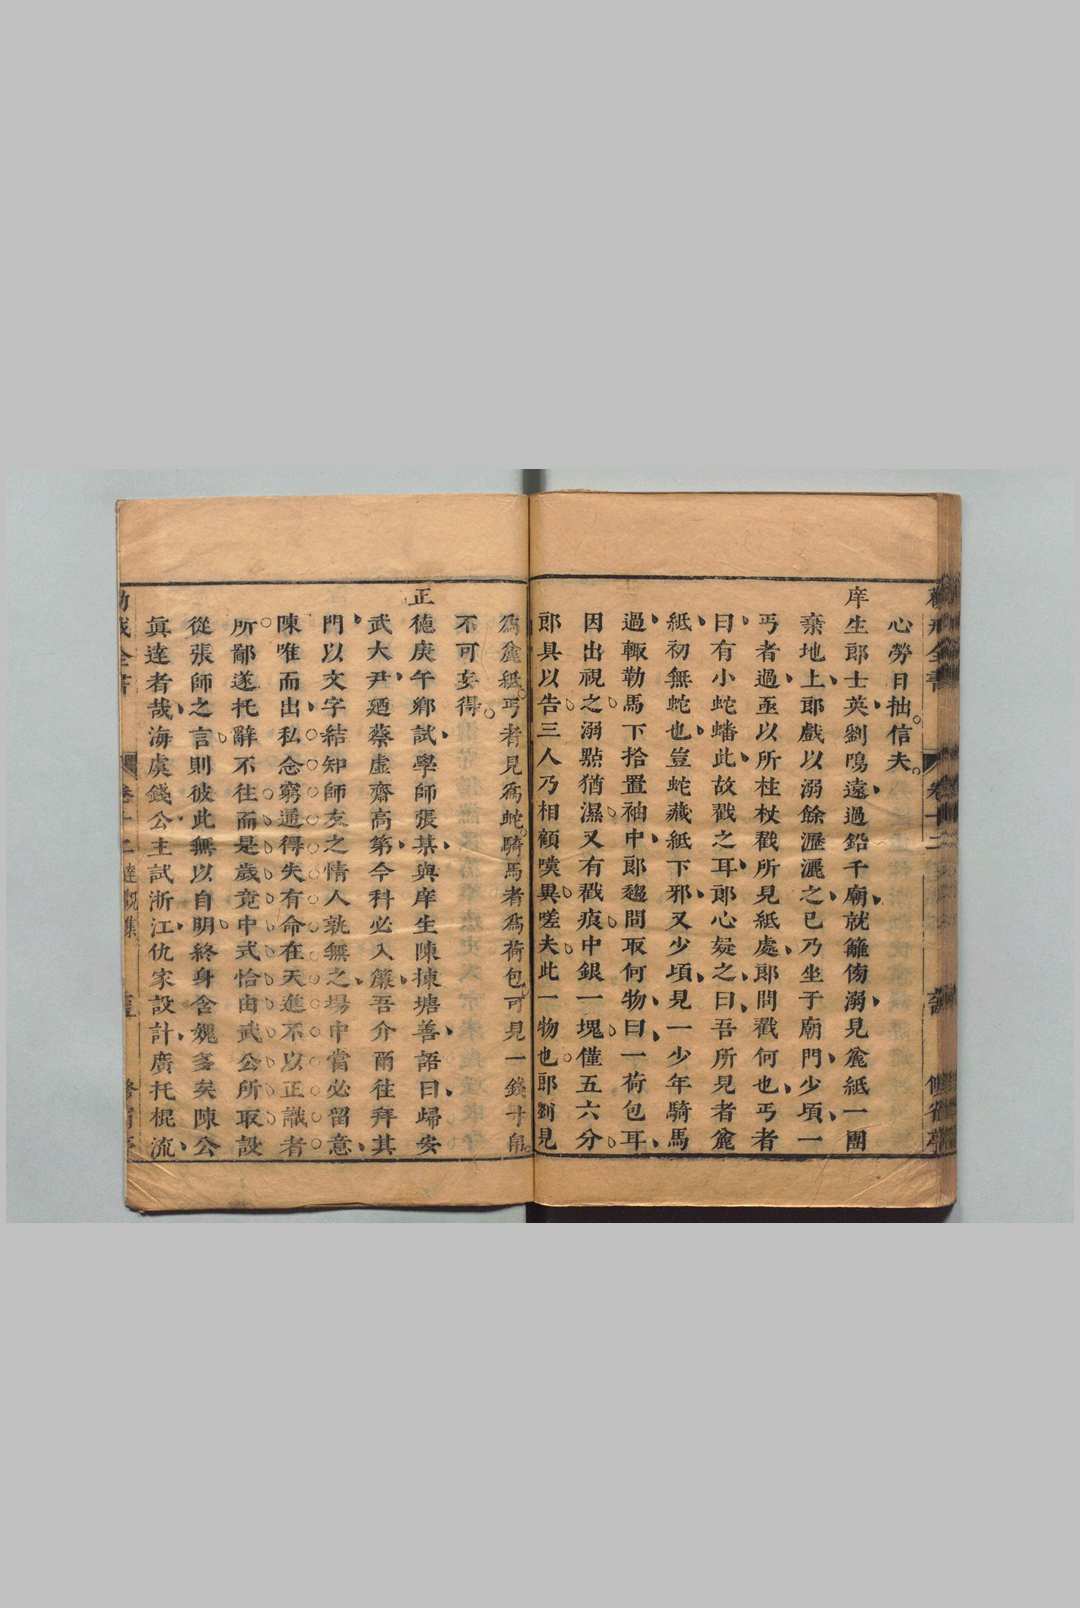 心勞日拙信夫
庠生郎士英劉陽遠過鉛千廟就籬傍溺見麄紙一團
棄地上郎戲以溺餘瀝灑之已乃坐于廟門少頃一
丐者過亟以所柱杖戳所見紙處郎問戳何也丐者
曰有小蛇蟠此故戳之耳郎心疑之曰吾所見者麄
紙初無蛇也豈蛇藏紙下邪又少頃見一少年騎馬
過輙勒馬下拾置袖中郎趨問取何物曰一荷包耳
因出視之溺點猶濕又有戳痕中銀一塊僅五六分
郎具以告三人乃相顧嘆異嗟夫此一物也郎劉見
為麄紙丐者見為蛇騎馬者為荷包可見一錢寸帛
不可妄得
正德庚午鄉試學師張某與庠生陳揀塘善語曰歸安
武大尹廼蔡虛齋高第今科必入簾吾介爾徃拜其
門以文字結知師友之情人孰無之場中當必留意
陳唯而出私念窮通得失有命在天進不以正識者
所鄙遂托辭不往而是歲竟中式恰由武公所取設
從張師之言則彼此無以自明終身含媿多矣陳公
眞達者哉海虞錢公主試浙江仇家設計廣托棍流
勸戒全書
卷十二達觀集